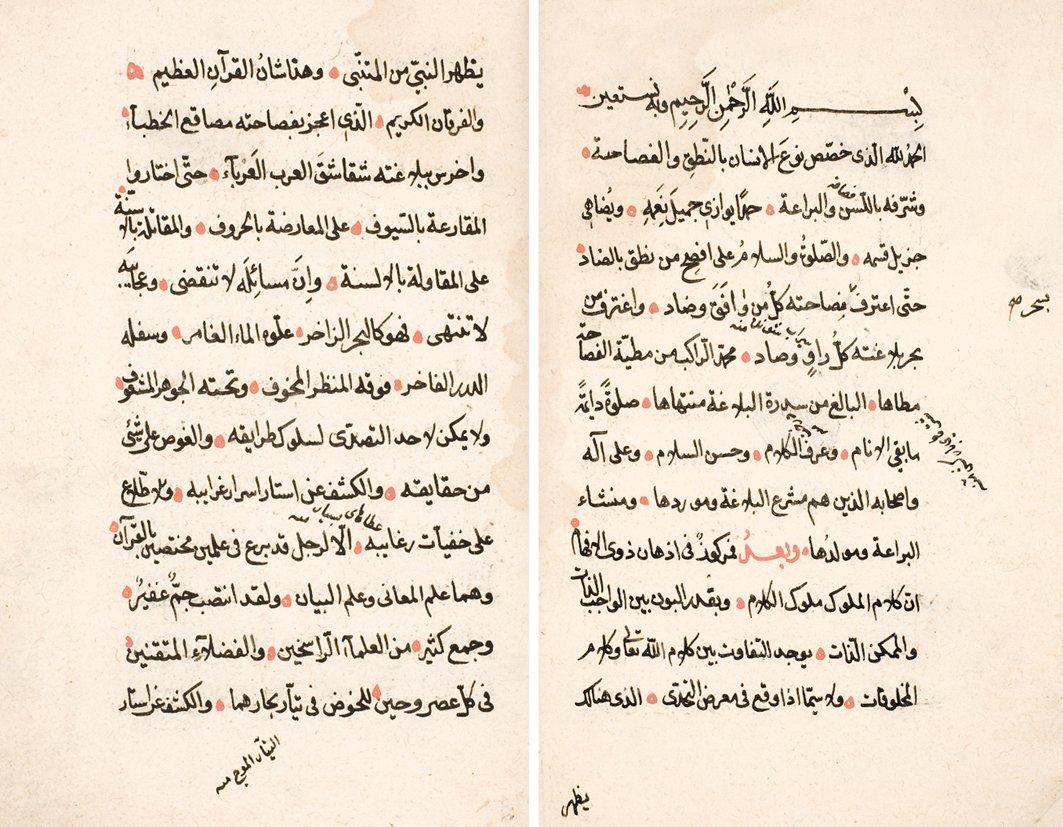 بسم الله الرحمن الرحيم وبه نستعين
الحمد لله الذي خصص نوع الانسان بالنطق والفصاحة
وشرفه باللسن والبراعة حمدا يوازي جميل نعمه ويضاهي
جزيل قسمه والصلوة والسلام على افصح من نطق بالضاد
حتى اعترف بفصاحته كل من وافق وضاد واغترف من
بحر بلاغته كل راو وصاد محمد الراكب من مطية الفصاحة
مطاها البالغ من سدرة البلاغة منتهاها صلوة دايمة
ما بقي الانام وعرف الكلام وحسن السلام وعلى آله
واصحابه الذين هم مشرع البلاغة وموردها ومنشاء
البراعة ومولدها وبعد فمركوز في اذهان ذوي الافهام
ان كلام الملوك ملوك الكلام وبقدر البون بين الواجب الذات
والممكن الذات يوجد التفاوت بين كلام الله تعالى وكلام
المخلوقات ولا سيما اذا وقع في معرض التحدي الذي هنالك
يظهر
يظهر النبي من المتنبى وهذا شان القرآن العظيم
والفرقان الكريم الذي اعجز بفصاحته مصاقع الخطبآء
واخرس ببلاغته شقاشق العرب العربآء حتى اختاروا
المقارعة بالسيوف على المعارضة بالحروف والمقاتلة بالاسنة
على المقاولة بالالسنة وان مسائله لا تنقضى وعجايبه
لا تنتهى فهو كالبحر الزاخر علوه الماء الغامر وسفله
الدرر الفاخر فوقه المنظر المخوف وتحته الجوهر المشوف
ولا يمكن لاحد التصدى لسلوك طرايقه والغوص على شئ
من حقايقه والكشف عن استار اسرار غرايبه والاطلاع
على خفيات رغايبه الا لرجل قد برع في علمين مختصين بالقرآن
وهما علم المعانى وعلم البيان ولقد انتصب جم غفير
وجمع كثير من العلمآء الراسخين والفضلآء المتقنين
في كل عصر وحين للخوض في تيار بحارهما والكشف عن استار
التيار الموج منه